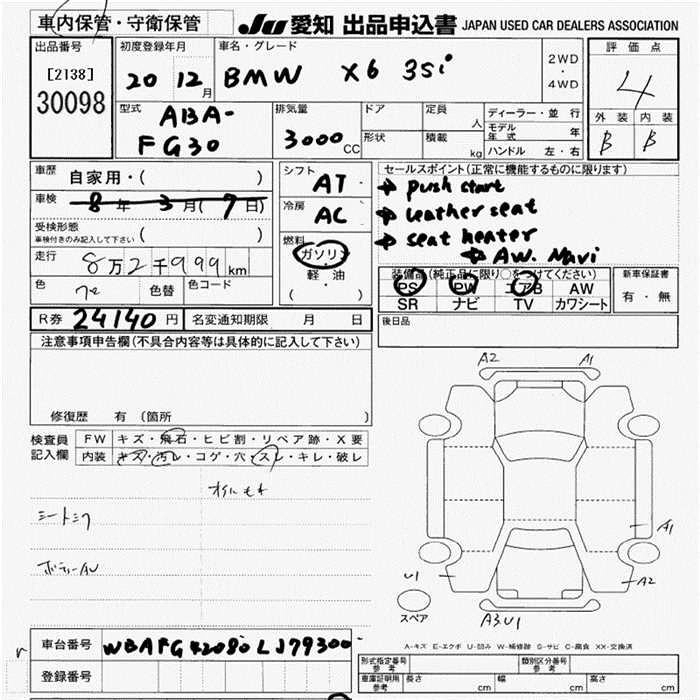 車内保管・守衛保管 JU 愛知 出品申込書 JAPAN USED CAR DEALERS ASSOCIATION
出品番号 [2138] 30098
初度登録年月 20 12月
車名・グレード BMW X6 35i
2WD・4WD
評価点 4
外装 B 内装 B
型式 ABA-FG30
排気量 3000cc
ドア 定員 人
形状 積載 kg
ディーラー・並行
モデル年式 年
ハンドル 左・右
車歴 自家用・( )
車検 8年3月(7日)
受検形態 車検付きのみ記入して下さい ( )
走行 8万2千999km
色 色替 色コード
シフト AT
冷房 AC
燃料 ガソリン 軽油 ( ・ )
セールスポイント(正常に機能するものに限ります)
→ push start
→ leather seat
→ seat heater
→ AW. Navi
装備品(純正品に限り○をつけてください)
PS PW エアB AW
SR ナビ TV カワシート
新車保証書 有・無
後日品
R券 24140円 名変通知期限 月 日
注意事項申告欄(不具合内容等は具体的に記入して下さい)
修復歴 有(箇所 )
検査員記入欄
FW キズ・飛石・ヒビ割・リペア跡・X要
内装 キズ・汚レ・コゲ・穴・スレ・キレ・破レ
A2 A1
A1
U1 A2
A3U1
スペア
A-キズ E-エクボ U-凹み W-補修跡 S-サビ C-腐食 XX-交換済
車台番号 WBAFG42080LJ79300
登録番号
型式指定番号 参考 類別区分番号 参考
車庫証明用 参考 長さ cm 幅 cm 高さ cm